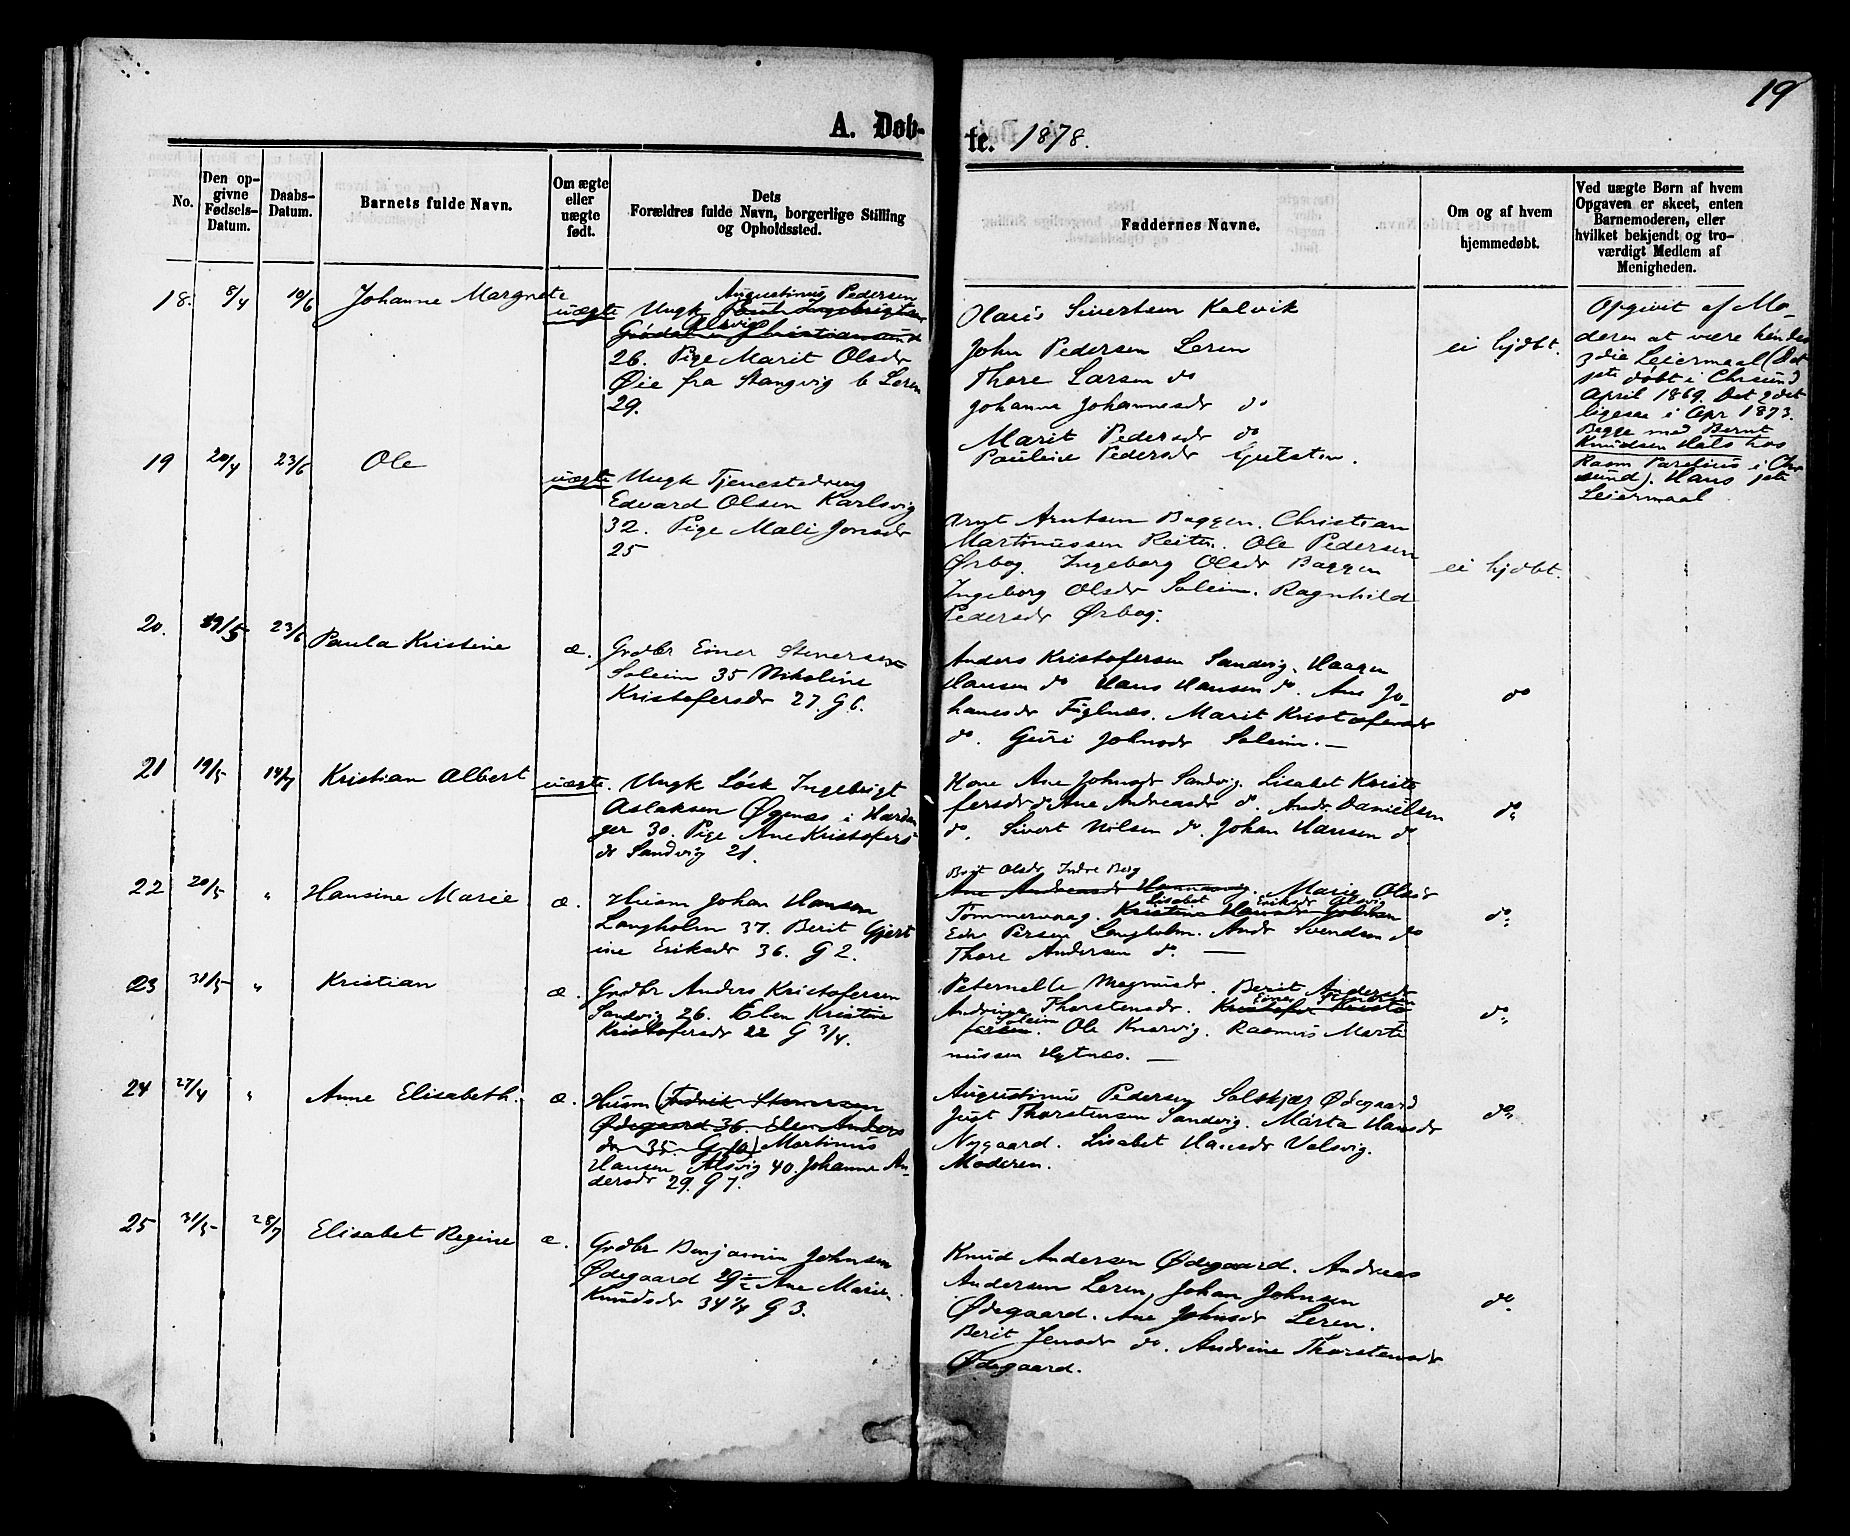 19
A. Døb-
te. 1878.
No.
Den op-
givne
Fødsels-
Datum.
Daabs-
Datum.
Barnets fulde Navn.
Om ægte
eller
uægte
født.
Dets
Forældres fulde Navn, borgerlige Stilling
og Opholdssted.
Faddernes Navne.
Om og af hvem
hjemmedøbt.
Ved uægte Børn af hvem
Opgaven er skeet, enten
Barnemoderen, eller
hvilket bekjendt og tro-
værdigt Medlem af
Menigheden.
18. 8/4 10/6 Johanne Margrete uægte
Augustinus Pedersen
Ungk
Alsvig
26. Pige Marit Olsdr
Øie fra Stangvig b Leren
29.
Olaus Sivertsen Kalvik
John Pedersen Leren
Thore Larsen do
Johanne Johannesdr do
Marit Pedersdr do
Pauline Pedersdr
ei hjdbt.
Opgivet af Mo-
deren at være hendes
3die Leiermaal (Det
1ste døbt i Chrsund
April 1869. Det 2det
ligesaa i Apr 1873.
Begge med Bernt
Knudsen Hals hos
Rasm Parelius i Chr
sund). Hans 1ste
Leiermaal
19 20/4 23/6 Ole uægte
Ungk Tjenestedreng
Edvard Olsen Karlsvig
32. Pige Mali Jonsdr
25
Arnt Arntsen Baggen. Christian
Martinussen Reiten. Ole Pedersen
Ørbog. Ingeborg Olsdr Baggen
Ingeborg Olsdr Soleim. Ragnhild
Pedersdr Ørbog.
ei hjdbt.
20. 19/5 23/6 Paula Kristine æ.
Grdbr Einer Stenersen
Soleim 35 Nikoline
Kristofersdr 27. G 6.
Anders Kristofersen Sandvig. Haagen
Hansen do Hans Hansen do. Ane Jo-
hanesdr Figlnæs. Marit Kristofersdr
do. Guri Johnsdr Soleim. —
do
21 19/5 14/7 Kristian Albert uægte.
Ungk Løsk Ingebrigt
Aslaksen Øgenæs i Hardan
ger 30. Pige Ane Kristofers
dr Sandvig 21.
Kone Ane Johnsdr Sandvig. Lisabet Kristo
fersdr do Ane Andreasdr do. Andr Danielsen
do. Sivert Nilsen do. Johan Hansen do
do
22 20/5 " Hansine Marie æ.
Husm Johan Hansen
Langholm 37. Berit Gjert
ine Eriksdr 36. G 2.
Brit Olsdr Indre Berg
Ane Andreasdr. Marie Olsdr
Lisabet Eriksdr Alsvig
Tømmervaag. Kristine Hansdr
Edv Persen Langholm. Andr Svendsen do
Thore Andersen do. —
do
23 31/5 " Kristian æ.
Grdbr Anders Kristofersen
Sandvig 26. Elen Kristine
Kristofersdr 22 G 3/4.
Peternelle Magnusdr. Berit Andersdr
Einer Stenersen
Andrina Thorstensdr. Kristofer Kristo
Soleim
fersen. Ole Knarvig. Rasmus Marti
nussen Hgtnæs. —
do
24 27/4 " Anne Elisabeth. æ.
Husm (Fredrik Stenersen
Ødegaard 36. Elen Anders
dr 35. G 10) Martinus
Hansen Alsvig 40. Johanne An-
dersdr 29. G 7.
Augustinus Pedersen Solskjær Ødegaard
Jugt Thorstensen Sandvig. Marta Hansdr
Nygaard. Lisabet Hansdr Valsvig.
Moderen.
do
25 31/5 28/7 Elisabet Regine æ.
Grdbr Benjamin Johnsen
Ødegaard 29 1/2 Ane Marie
Knudsdr 34 1/4 G 3.
Knud Andersen Ødegaard. Andreas
Andersen Leren, Johan Johnsen
Ødegaard. Ane Johnsdr Leren.
Berit Jensdr do. Andrine Thorstensdr
Ødegaard.
do